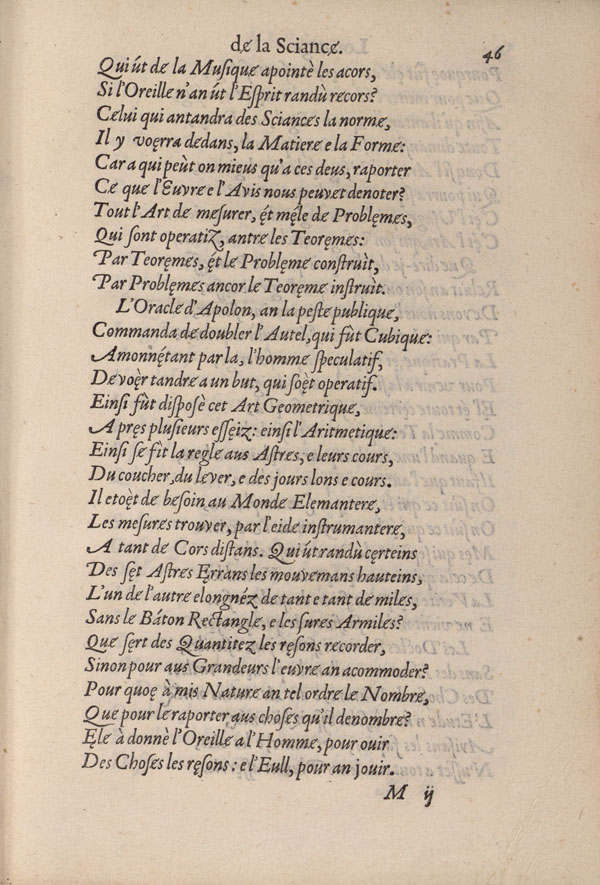 de la Sciancę.
46
Qui út de la Musique apointè les acors,
Si l'Oreille n'an út l'Esprit randù recors?
Celui qui antandra des Sciances la norme,
Il y voęrra dedans, la Matiere e la Forme:
Car a qui peùt on mieus qu'a ces deus, raporter
Ce que l'Euvre e l'Avis nous peuvet denoter?
Tout l'Art de mesurer, ęt męle de Problęmes,
Qui sont operatiz, antre les Teoręmes:
Par Teoręmes, ęt le Problęme construìt,
Par Problęmes ancor le Teoręme instruìt.
L'Oracle d'Apolon, an la peste publique,
Commanda de doubler l'Autel, qui fùt Cubique:
Amonnętant par la, l'homme speculatif,
Devoęr tandre a un but, qui soęt operatif.
Einsi fùt disposè cet Art Geometrique,
A pręs plusieurs esseiz: einsi l'Aritmetique:
Einsi se fìt la regle aus Astres, e leurs cours,
Du coucher, du lever, e des jours lons e cours.
Il etoęt de besoin au Monde Elemantere,
Les mesures trouver, par l'eide instrumantere,
A tant de Cors distans. Qui út randù cęrteins
Des sęt Astres Errans les mouvemans hauteins,
L'un de l'autre elongnéz de tant e tant de miles,
Sans le Báton Rectangle, e les sures Armiles?
Que sert des Quantitez les ręsons recorder,
Sinon pour aus Grandeurs l'euvre an acommoder?
Pour quoę à mis Nature an tel ordre le Nombre,
Que pour le raporter aus choses qu'il denombre?
Ęle à donnè l'Oreille a l'Homme, pour ouir
Des Choses les ręsons: e l'Eull, pour an jouir.
M ij